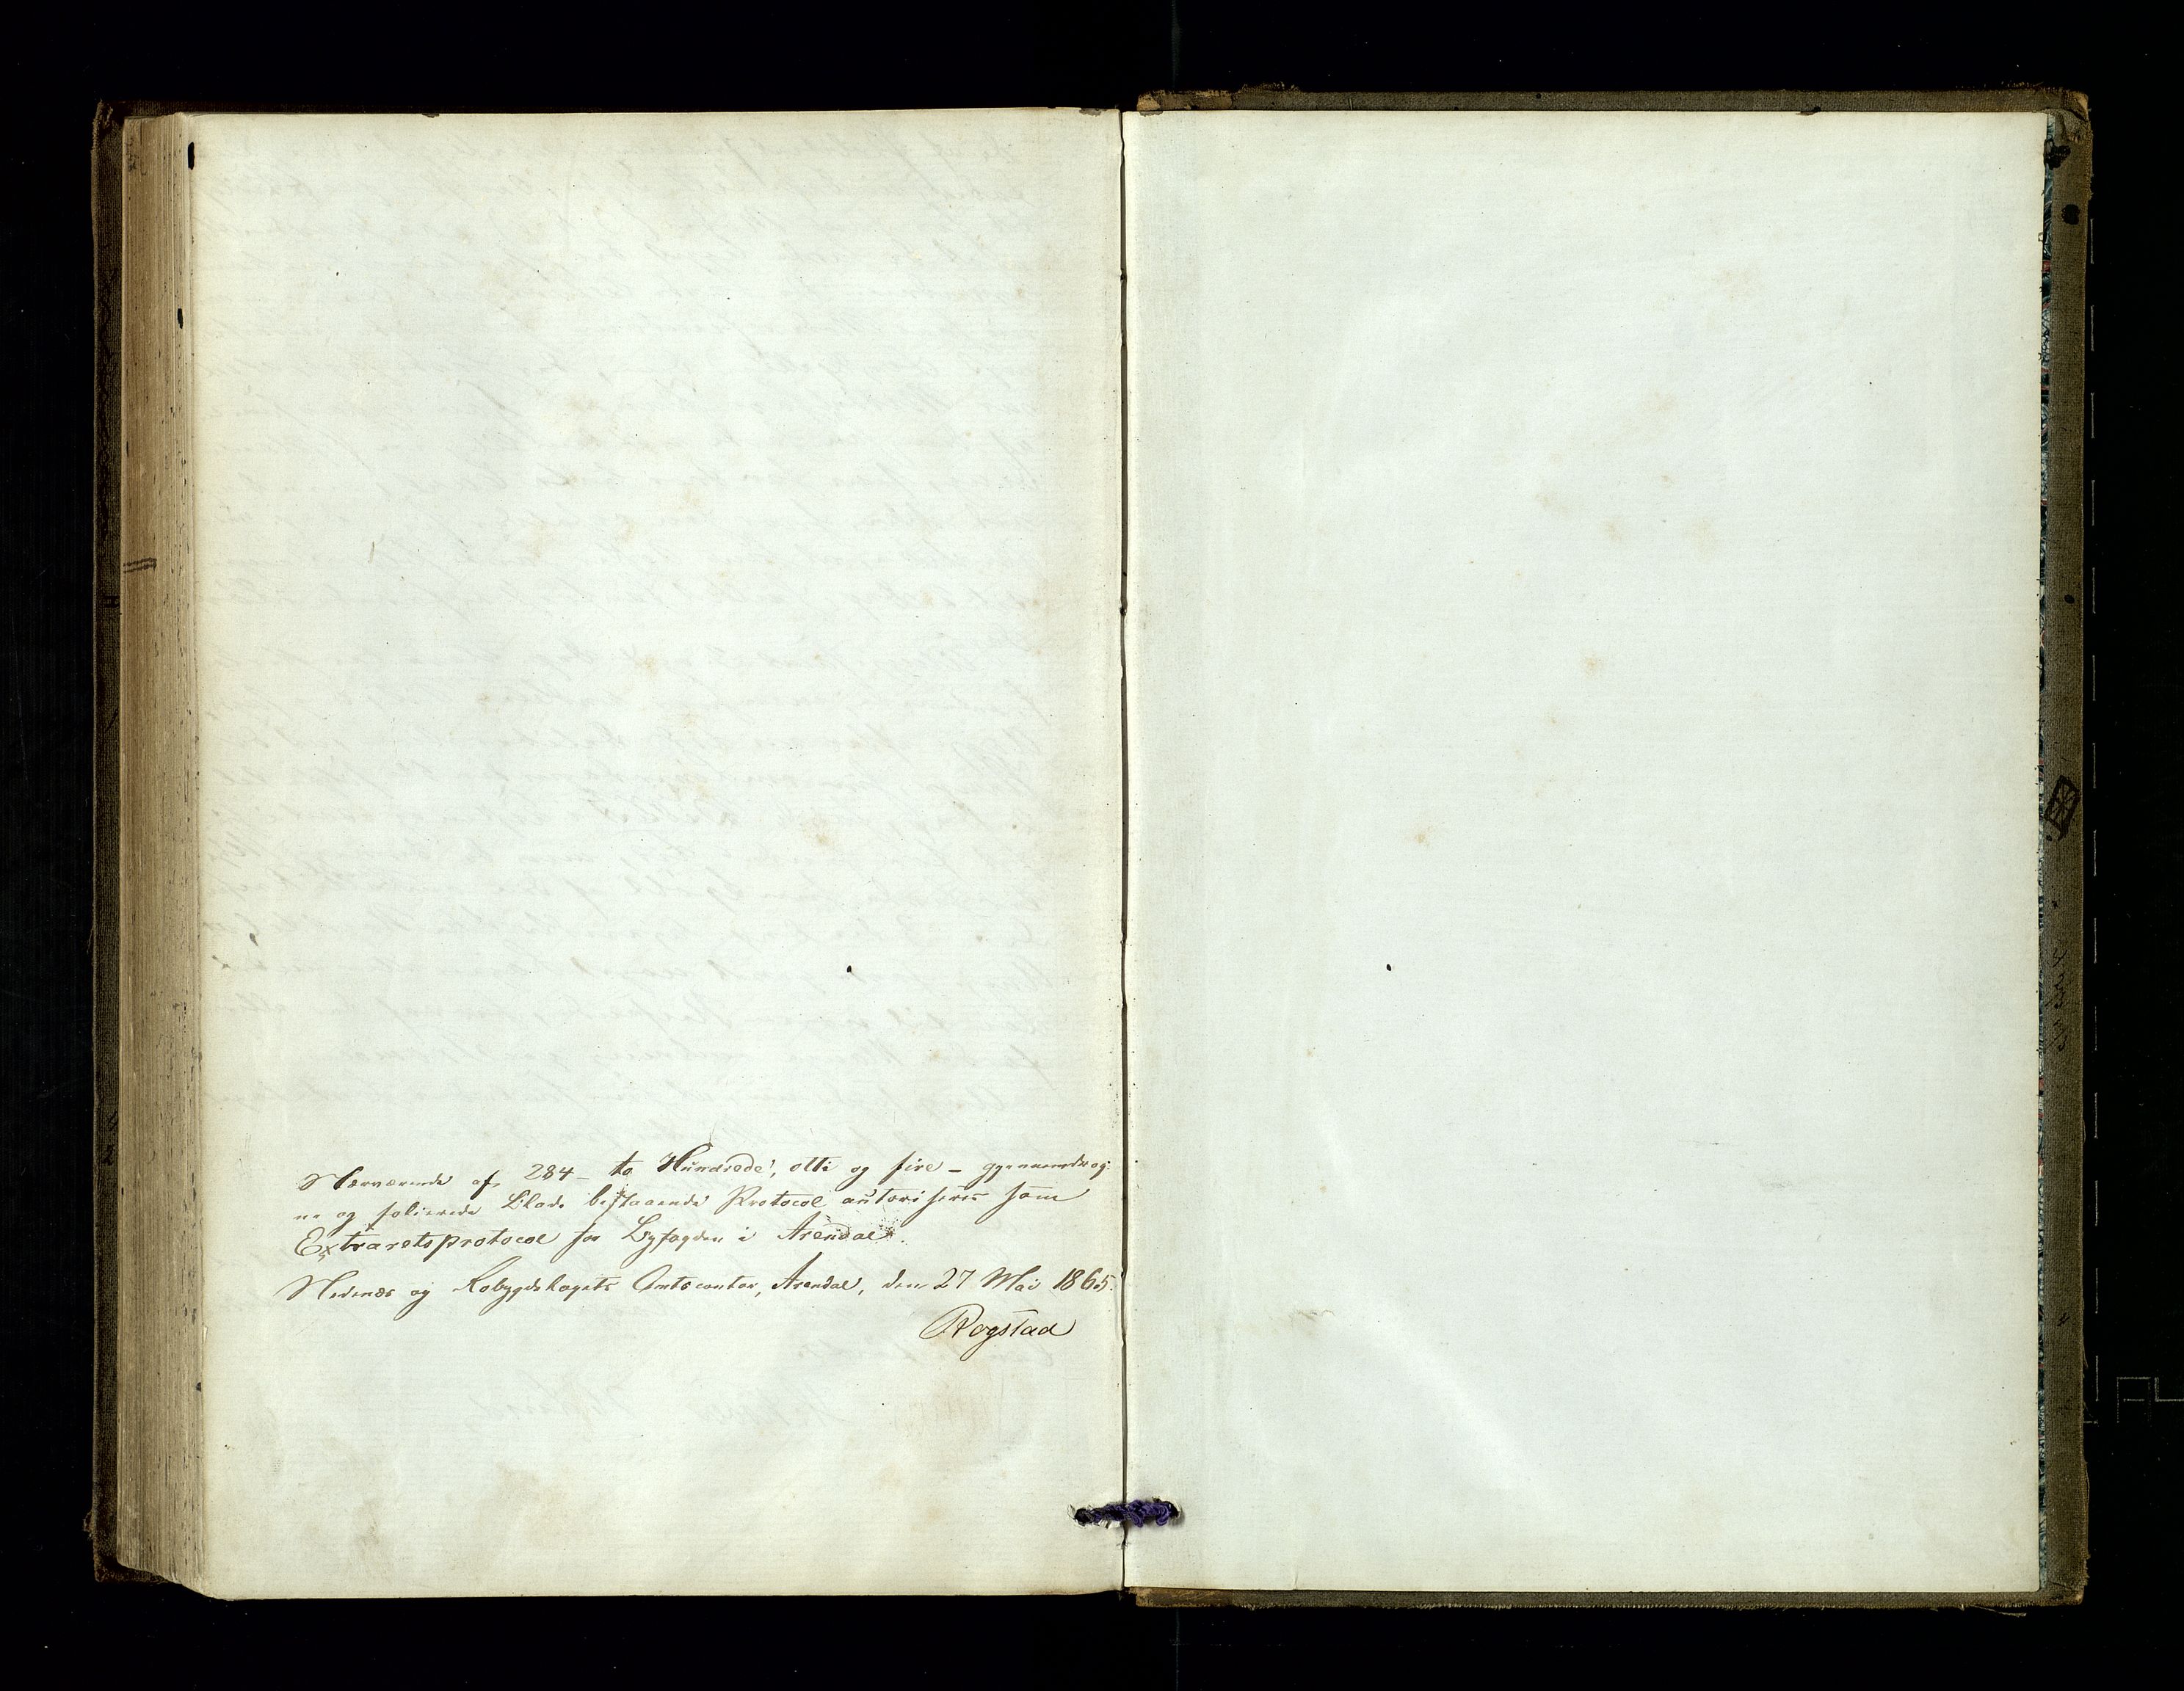 Nærværende af 284 - to Hundrede, otti og fire - gjennemdrag-
ne og folierede Blade bestaaende Protocol autoriseres som
Extraretsprotocol for Byfogden i Arendal.
Nedenæs og Robygdelagets Amtscontor, Arendal, den 27 Mai 1865.
Rogstad